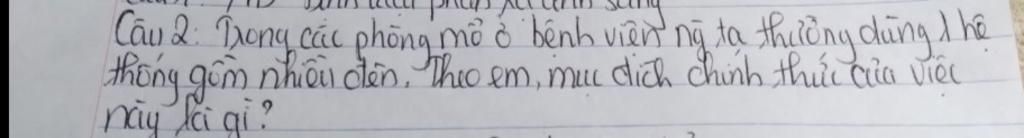 Câu 2: Trong các phòng mổ ở bệnh viện ng ta thường dùng 1 hệ
thống gồm nhiều đèn. Theo em, mục đích chính thức của việc
này là gì?